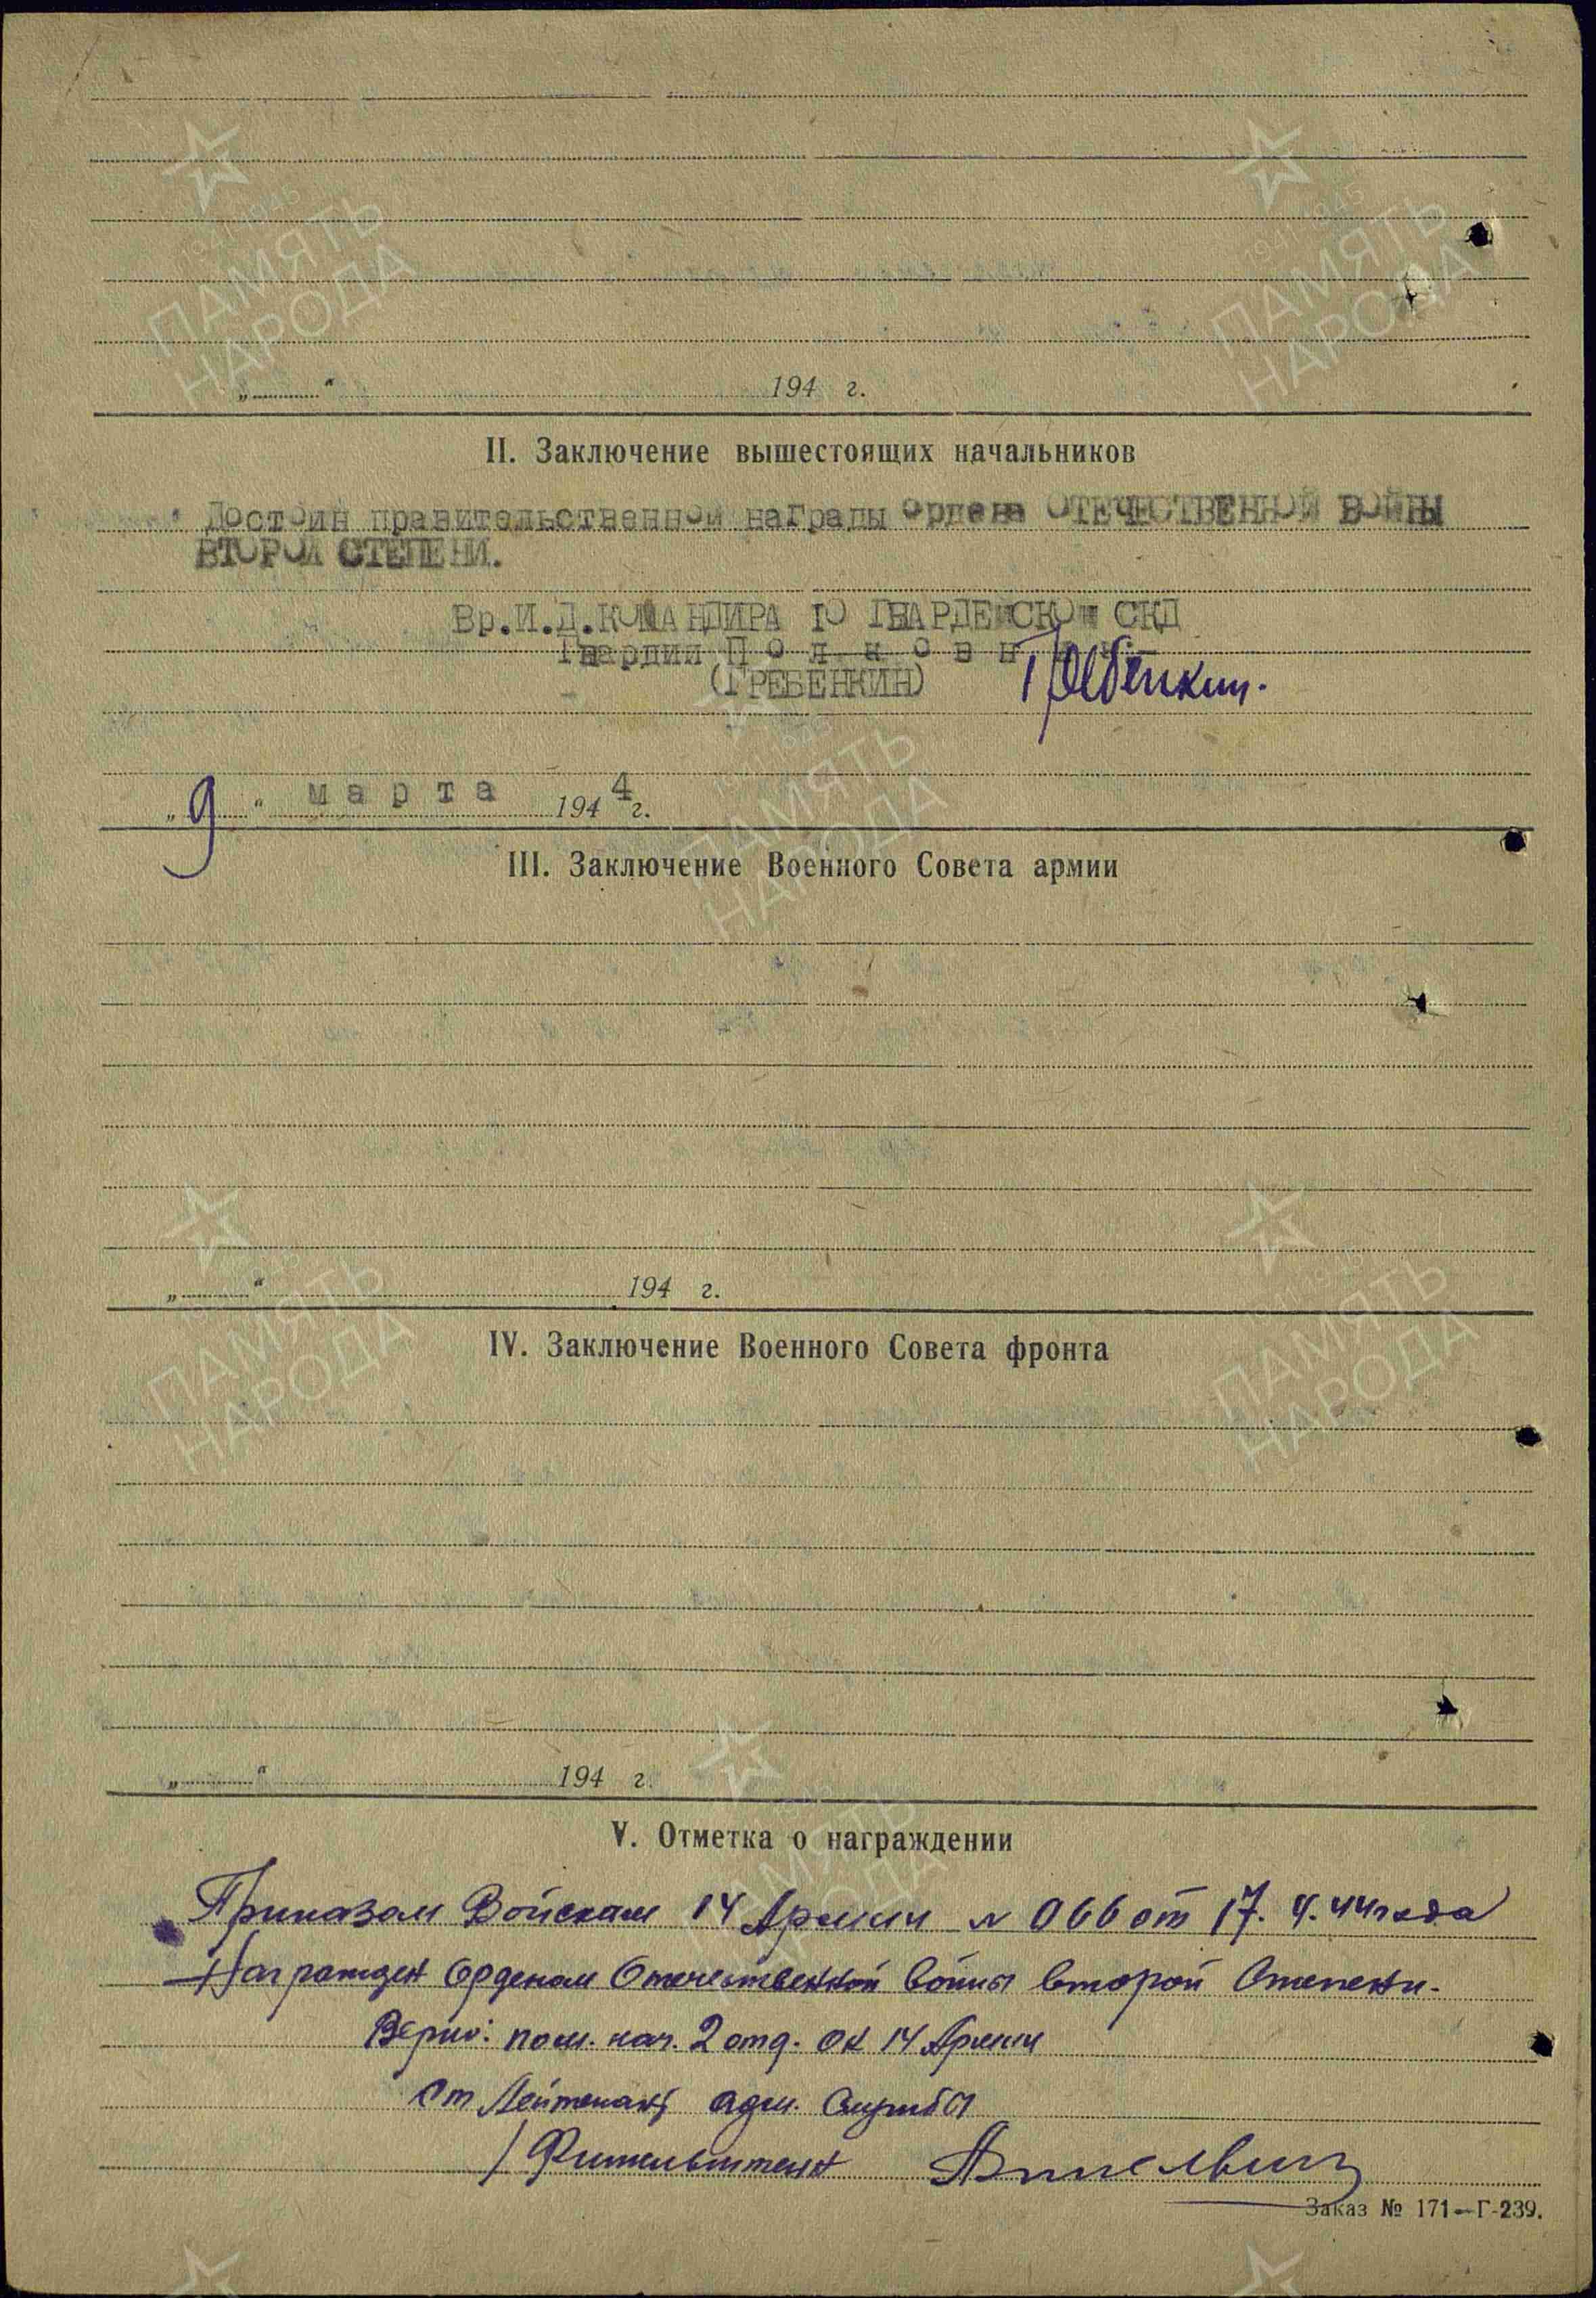 „ “ 194 г.
II. Заключение вышестоящих начальников
Достоин правительственной награды ордена ОТЕЧЕСТВЕННОЙ ВОЙНЫ
ВТОРОЙ СТЕПЕНИ.
Вр.И.Д.КОМАНДИРА 10 ГВАРДЕЙСКОЙ СКД
Гвардии П о л к о в н и к
(ГРЕБЕНКИН) Гребенкин.
„ 9 “ марта 1944 г.
III. Заключение Военного Совета армии
„ “ 194 г.
IV. Заключение Военного Совета фронта
„ “ 194 г.
V. Отметка о награждении
Приказом Войскам 14 Армии № 066 от 17. 4. 44 года
Награжден Орденом Отечественной Войны второй Степени.
Верно: пом. нач. 2 отд. ОК 14 Армии
Ст Лейтенант адм. Службы
Заказ № 171—Г-239.
1941-1945
ПАМЯТЬ
НАРОДА
1941-1945
ПАМЯТЬ
НАРОДА
1941-1945
ПАМЯТЬ
НАРОДА
1941-1945
ПАМЯТЬ
НАРОДА
1941-1945
ПАМЯТЬ
НАРОДА
ПАМЯТЬ
НАРОДА